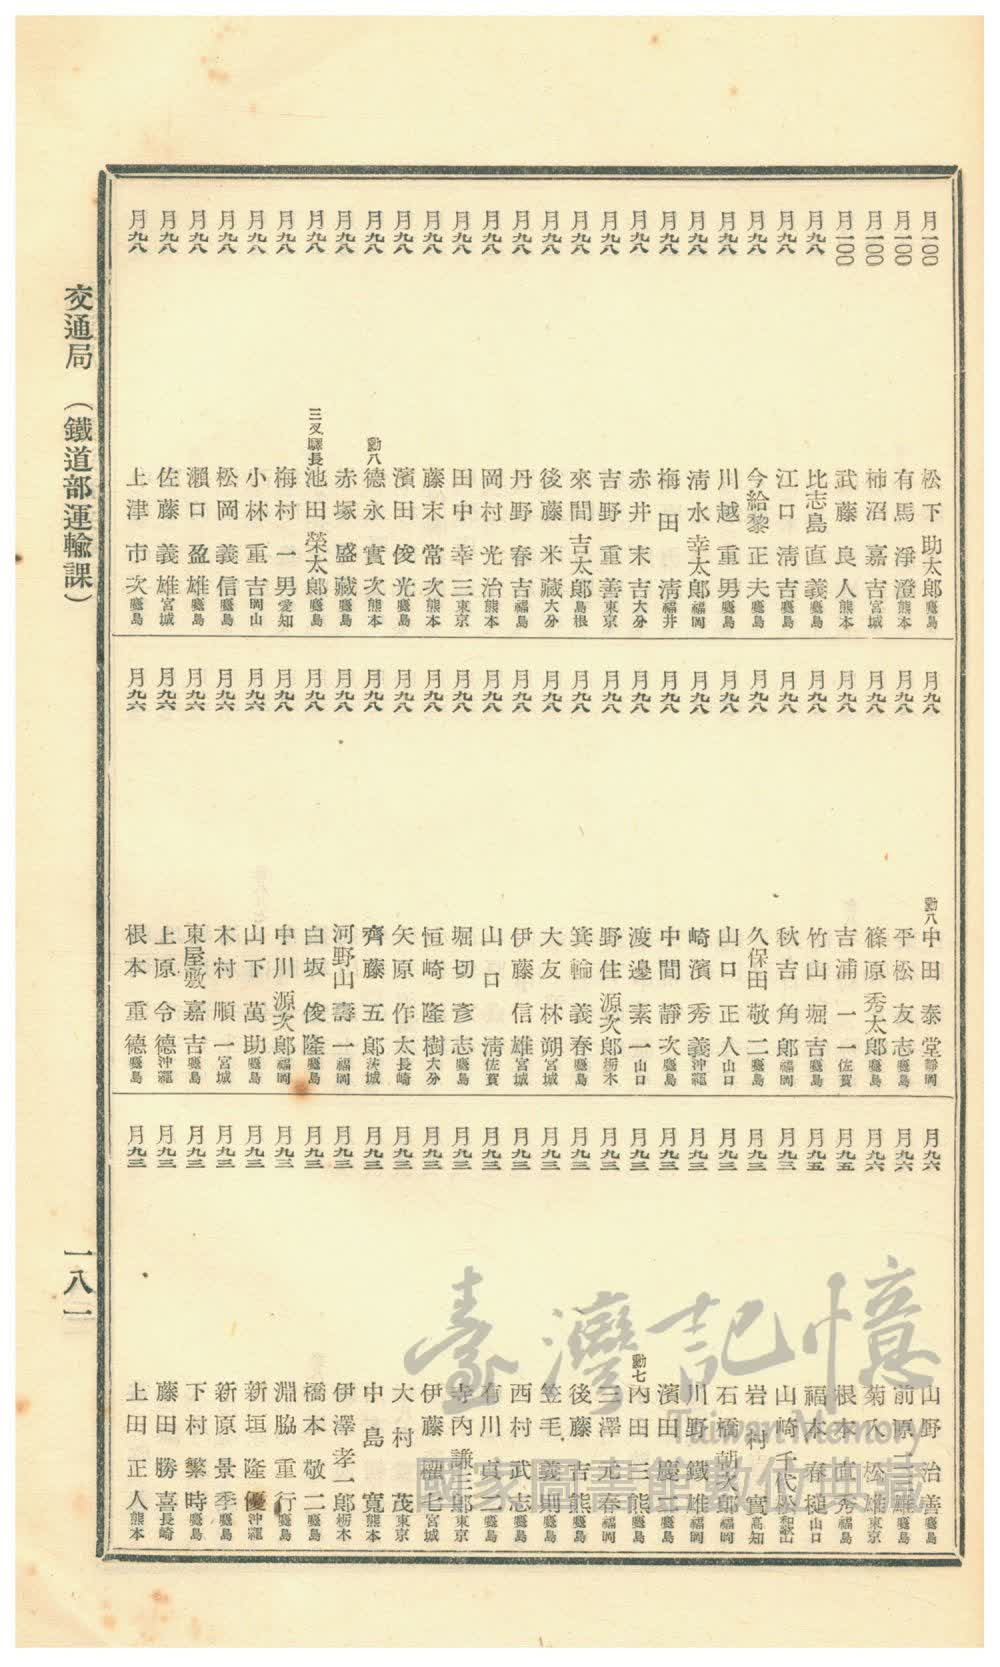 月一〇〇 松下助太郎 鹿兒島
月一〇〇 有馬淨澄 熊本
月一〇〇 柿沼嘉吉 宮城
月一〇〇 武藤良人 熊本
月九八 比志島直義 鹿兒島
月九八 江口淸吉 鹿兒島
月九八 今給黎正夫 鹿兒島
月九八 川越重男 鹿兒島
月九八 淸水幸太郎 福岡
月九八 梅田淸 福井
月九八 赤井末吉 大分
月九八 吉野重善 東京
月九八 來間吉太郎 島根
月九八 後藤米藏 大分
月九八 丹野春吉 福島
月九八 岡村光治 熊本
月九八 田中幸三 東京
月九八 藤末常次 熊本
月九八 濱田俊光 鹿兒島
月九八 勳八 德永實次 熊本
月九八 赤塚盛藏 鹿兒島
月九八 三叉驛長 池田榮太郎 鹿兒島
月九八 梅村一男 愛知
月九八 小林重吉 岡山
月九八 松岡義信 鹿兒島
月九八 瀨口盈雄 鹿兒島
月九八 佐藤義雄 宮城
月九八 上津市次 鹿兒島
月九八 勳八 中田泰堂 靜岡
月九八 平松友志 鹿兒島
月九八 篠原秀太郎 鹿兒島
月九八 吉浦一一 佐賀
月九八 竹山堀吉 鹿兒島
月九八 秋吉角郎 福岡
月九八 久保田敬二 鹿兒島
月九八 山口正人 山口
月九八 崎濱秀義 沖繩
月九八 中間靜次 鹿兒島
月九八 渡邉素一 山口
月九八 野住源次郎 栃木
月九八 箕輪義春 鹿兒島
月九八 大友林朔 宮城
月九八 伊藤信雄 宮城
月九八 山口淸 佐賀
月九八 堀切彥志 鹿兒島
月九八 恒崎隆樹 大分
月九八 矢原作太 長崎
月九八 齊藤五郎 茨城
月九八 河野山壽一 福岡
月九八 白坂俊隆 鹿兒島
月九八 中川源次郎 福岡
月九六 山下萬助 鹿兒島
月九六 木村順一 宮城
月九六 東屋敷嘉吉 鹿兒島
月九六 上原令德 沖繩
月九六 根本重德 鹿兒島
月九六 山野治善 鹿兒島
月九六 前原 鹿兒島
月九六 菊入松雄 東京
月九五 根本直秀 福島
月九五 福本春槌 山口
月九三 山崎千代松 和歌山
月九三 岩村實 高知
月九三 石橋朝次郎 福岡
月九三 川野鐵雄 福岡
月九三 濱田慶二 鹿兒島
月九三 勳七 內田三熊 鹿兒島
月九三 三澤元春 福岡
月九三 後藤吉熊 鹿兒島
月九三 笠毛義則 鹿兒島
月九三 西村武志 鹿兒島
月九三 有川貞二 鹿兒島
月九三 寺內謙三郎 東京
月九三 伊藤權七 宮城
月九三 大村茂 東京
月九三 中島寬 熊本
月九三 伊澤孝一郎 栃木
月九三 橋本敬二 鹿兒島
月九三 淵脇重行 鹿兒島
月九三 新垣隆優 沖繩
月九三 新原景季 鹿兒島
月九三 下村繁時 鹿兒島
月九三 藤田勝喜 長崎
月九三 上田正人 熊本
交通局 (鐵道部運輸課)
一八一
臺灣記憶
Taiwan Memory
國家圖書館數位典藏